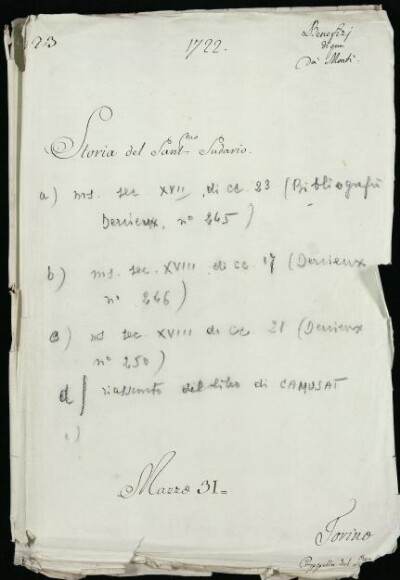 23
1722.
Benefizj
di qua
Da Monti.
Storia del Sant.mo Sudario.
a) ms. sec XVII, di cc. 23 (Bibliografia
Dervieux, n° 245)
b) ms. sec. XVIII, di cc. 17 (Dervieux
n° 246)
c) ms sec. XVIII di cc. 21 (Dervieux
n° 250)
d) riassunto del libro di CAMUSAT
e)
Marzo 31=
Torino
Cappella del